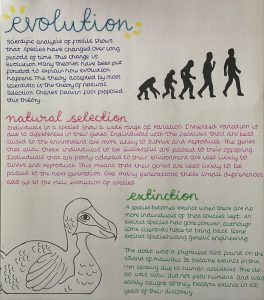 evolution
Scientific analysis of fossils shows
that species have changed over long
periods of time. This change is
evolution. Many theories have been put
forward to explain how evolution
happens. The theory accepted by most
scientists is the theory of natural
selection. Charles Darwin first proposed
this theory.
natural selection
Individuals in a species show a wide range of variation. This variation is
due to differences in their genes. Individuals with the features that are best
suited to the environment are more likely to survive and reproduce. The genes
that allow these individuals to be successful are passed to their offspring.
Individuals that are poorly adapted to their environment are less likely to
survive and reproduce. This means that their genes are less likely to be
passed to the next generation. Over many generations these small differences
add up to the new evolution of species.
extinction
A species becomes extinct when there are no
more individuals of that species left. An
extinct species has gone forever, although
some scientists hope to bring back some
extinct species using genetic engineering.
The dodo was a flightless bird found on the
island of Mauritius. It became extinct in the
17th century due to human activities. The dodo
was slow, did not fear humans and was
easily caught so they became extinct in 100
years of their discovery.